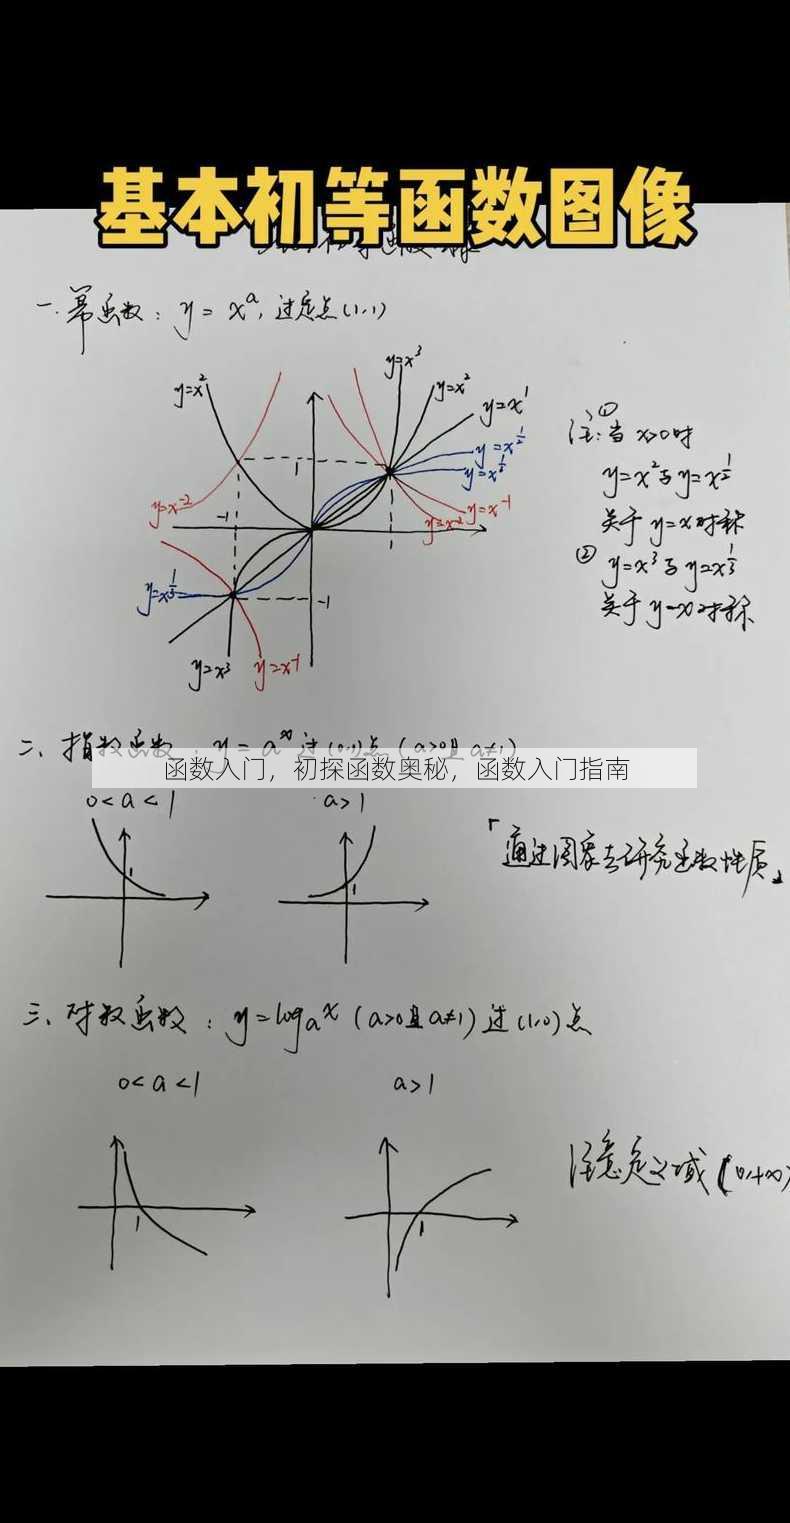 基本初等函数图像
一.幂函数：y = x^a，过定点(1,1)
y=x^3
y=x^2
y=x^2
y=x^1
y=x^{1/2}
y=x^{1/3}
1
y=x^{-2}
-1
y=x^{-2}
y=x^{-1}
1
y=x^{1/3}
-1
y=x^3
y=x^{-1}
注：①当x>0时
y=x^2与y=x^{1/2}
关于y=x对称
②y=x^3与y=x^{1/3}
关于y=x对称
二、指数函数：y = a^x 过(0,1)点(a>0且a≠1)
函数入门，初探函数奥秘，函数入门指南
0<a<1
a>1
1
1
「通过图象去研究函数性质」
三、对数函数：y=log_a x (a>0且a≠1)过(1,0)点
0<a<1
a>1
1
1
注意定义域(0,+∞)